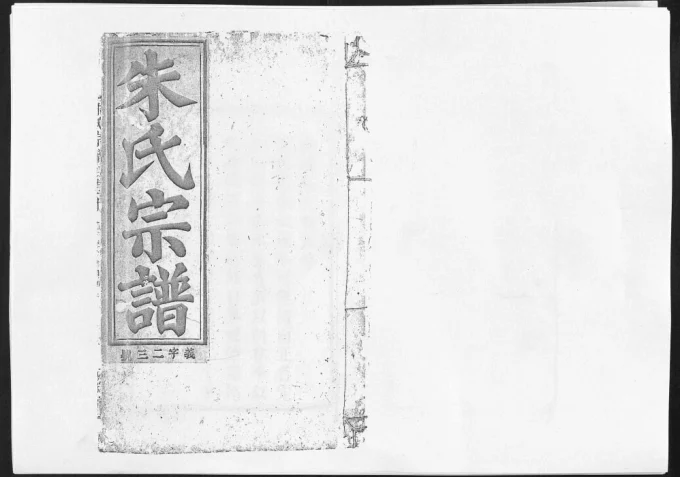 朱氏宗譜
義字二三